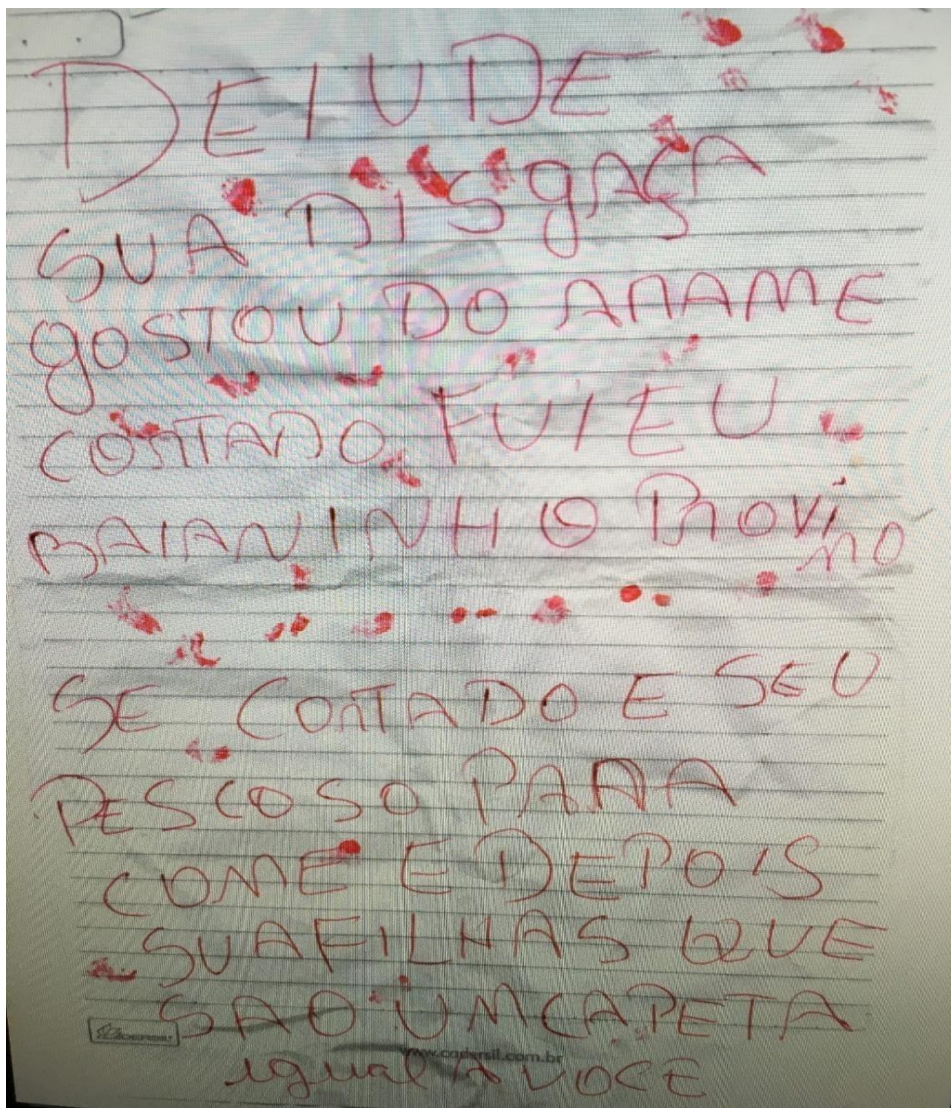 DEIUDE
SUA DISGAÇA
gOSTOU DO ARAME
CORTADO FUI EU
BAIANINHO O PROVI
MO
SE CORTADO E SEU
PESCOSO PARA
COME E DEPOIS
SUAFILHAS QUE
SAO UMCAPETA
igual A VOCE
www.cadersil.com.br